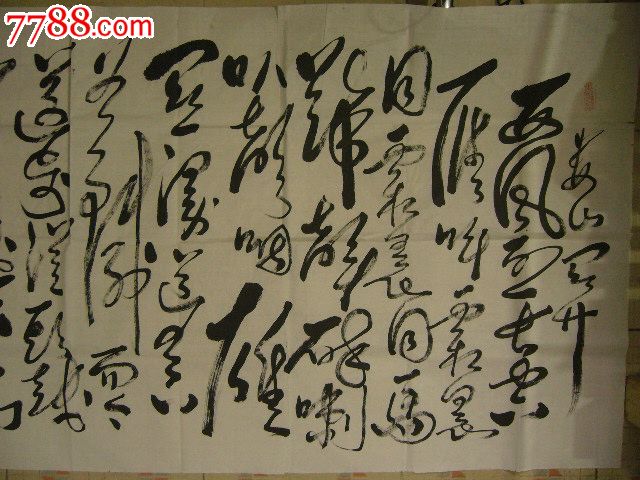 7788.com
娄山关
西风烈长空
雁叫霜晨
月霜晨月马
蹄声碎喇
叭声咽雄
关漫道真
如铁而今
迈步从头越